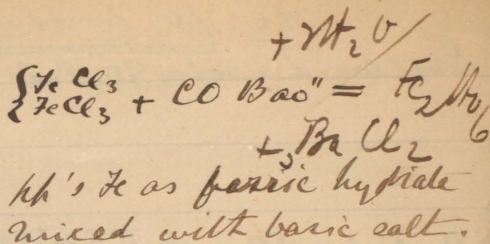 + nH₂O
{FeCl₃
{FeCl₃ + CO Bao" = Fe₂Ho₆
+ 3BaCl₂
pp's Fe as ferric hydrate
mixed with basic salt.